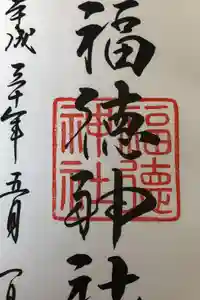 福徳神社
福德
神社
平成三十年五月一日